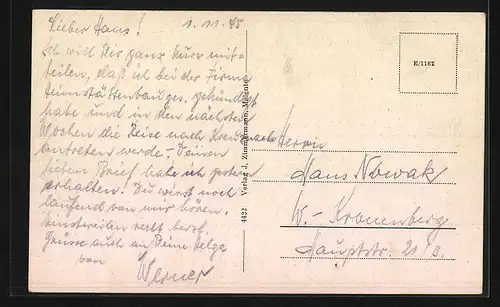 Lieber Hans! 1.11.45
Ich will Dir ganz kurz mit-
teilen, daß ich bei der Firma
Heimstättenbauges. gekündigt
habe und in den nächsten
Wochen die Reise nach Kreuznach
antreten werde. - Deinen
lieben Brief habe ich gestern
erhalten! Du wirst noch
laufend von mir hören.
Einstweilen recht herzl.
Grüsse auch an Deine Helga
von Werner
4422 Verlag J. Zimmermann,
E/1162
Herrn
Hans Nowak
W.-Kronenberg
Hauptstr. 21